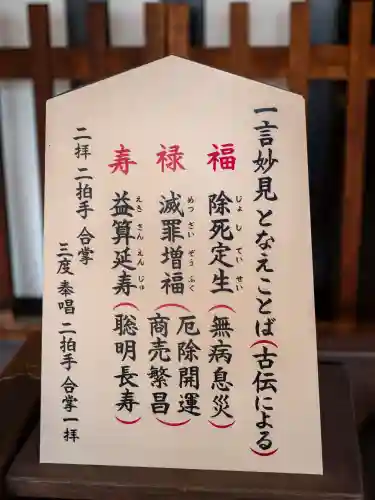 一言妙見 となえことば(古伝による)
福 除死定生(無病息災)
じょ し てい せい
禄 滅罪増福(厄除開運 商売繁昌)
めつ ざい ぞう ふく
寿 益算延寿(聡明長寿)
えき さん えん じゅ
二拝 二拍手 合掌
三度 奉唱 二拍手 合掌一拝